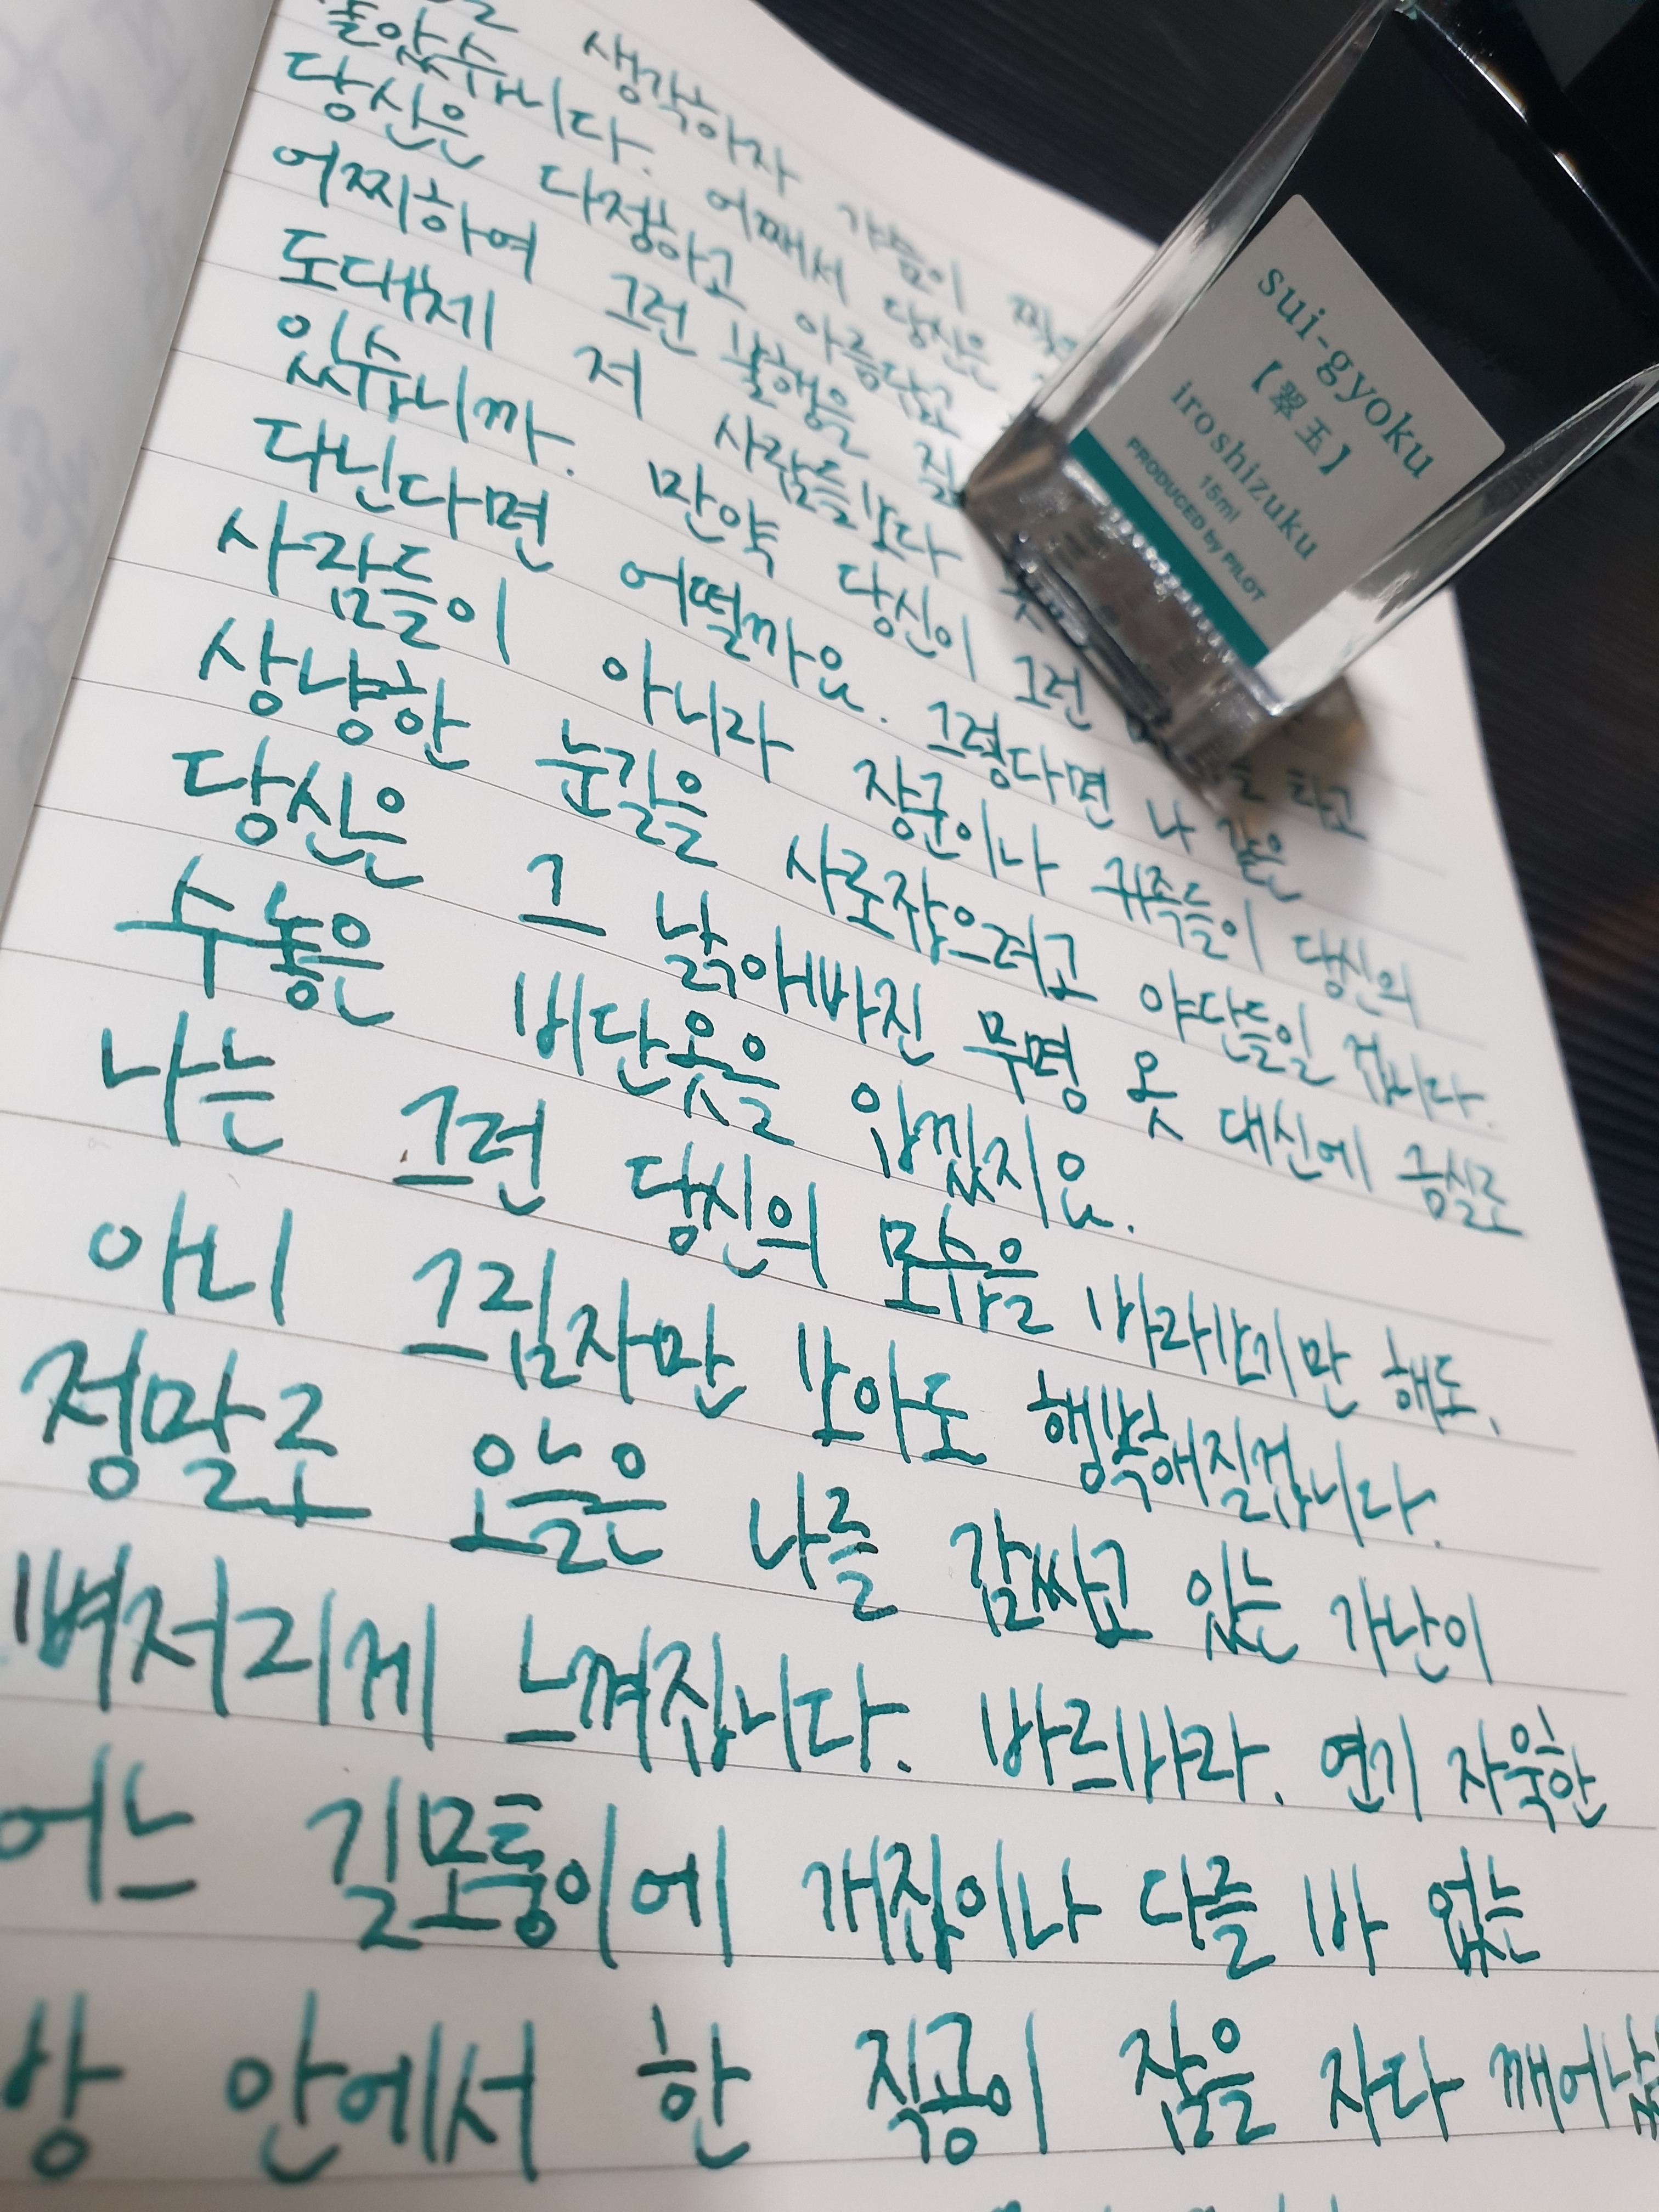 생각하자 가슴이
돌았습니다. 어째서 당신은
당신은 다정하고 아름답고
어찌하여 그런 불행을
도대체 저 사람들보다
있습니까. 만약 당신이 그런 타고
다닌다면 어떨까요. 그렇다면 나 같은
사람들이 아니라 장군이나 귀족들이 당신의
상냥한 눈길을 사로잡으려고 야단들일 겁니다.
당신은 그 낡아빠진 무명 옷 대신에 금실로
수놓은 비단옷을 입겠지요.
나는 그런 당신의 모습을 바라보기만 해도,
아니 그림자만 보아도 행복해질겁니다.
정말로 오늘은 나를 감싸고 있는 가난이
뼈저리게 느껴집니다. 바르바라. 연기 자욱한
어느 길모퉁이에 개집이나 다를 바 없는
방 안에서 한 직공이 잠을 자다
sui-gyoku
【翠玉】
iroshizuku
15ml
PRODUCED by PILOT